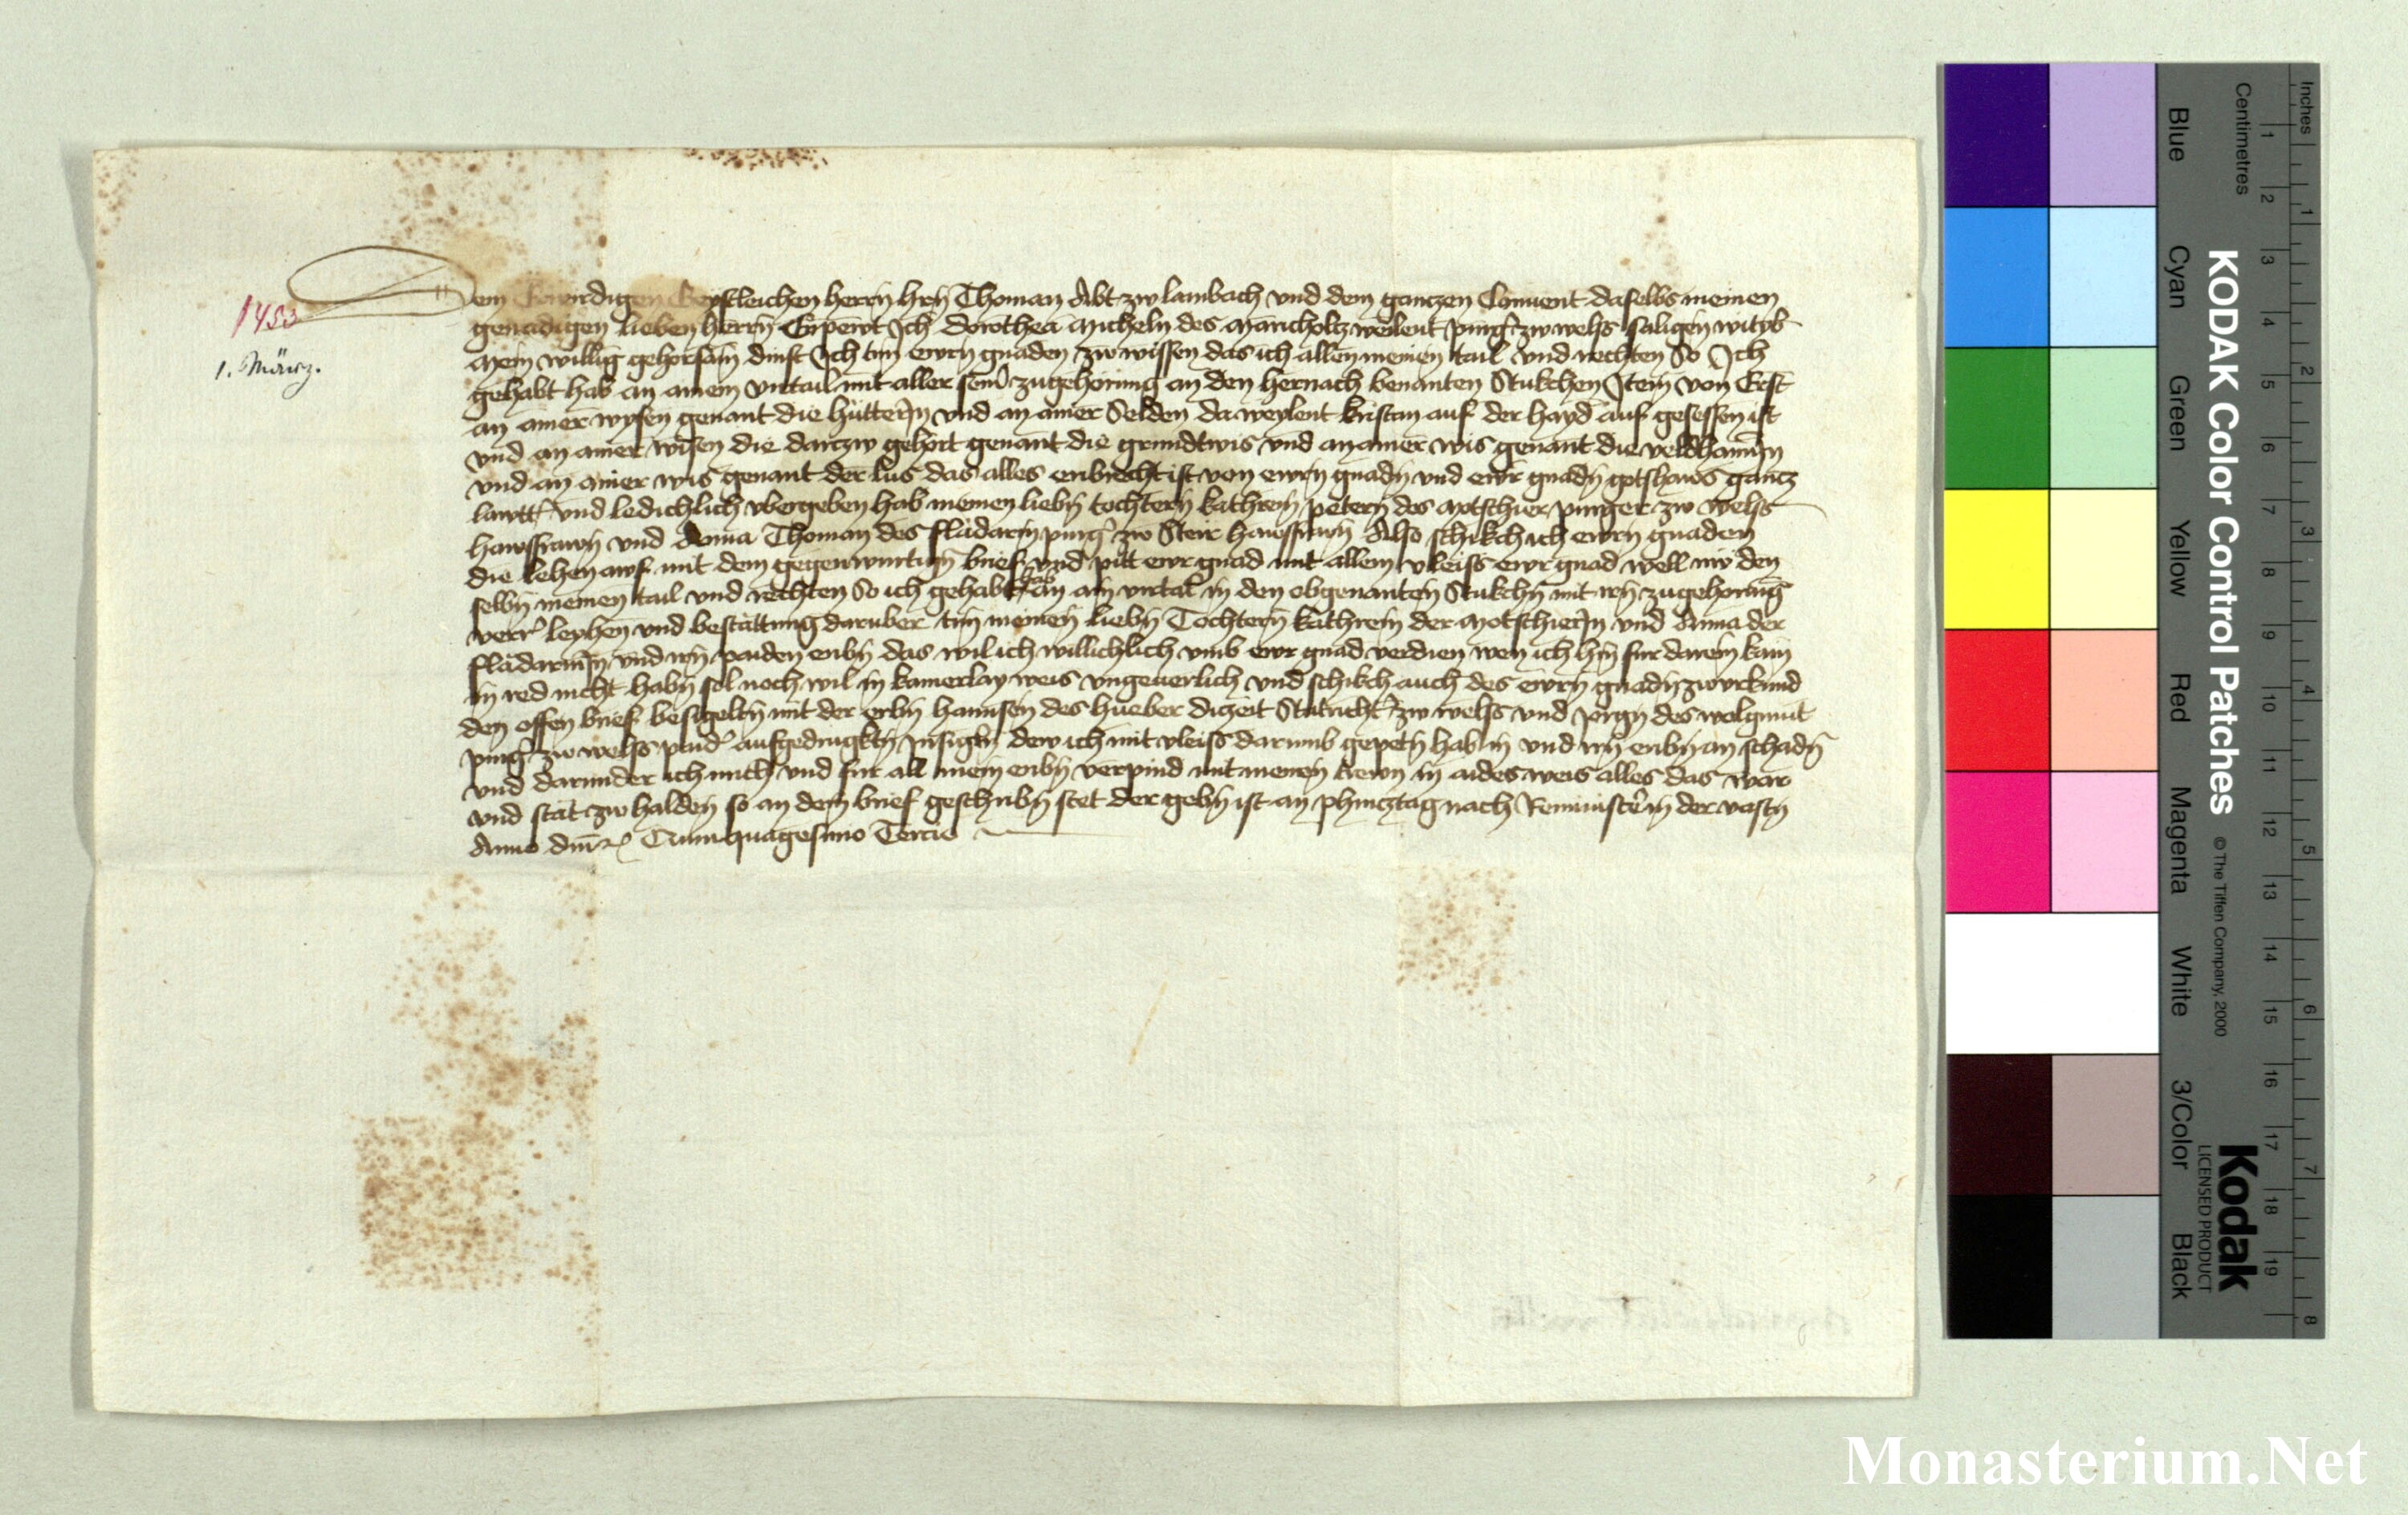 1453
1. März.
Dem Erwirdigen Geystleichen herrn hrn Thoman Abt zw lambach vnd dem ganczen Conuent daselbs meinen
genadigen lieben herrn Enpewt Ich dorothea Micheln des Mancholtz weilent purger zw wels saligen wityb
Mein willig gehorsam dinst Ich tun ewrn gnaden zw wissen das ich allen meinen tail vnd rechten So Ich
gehabt hab an ainem vrtail mit aller seiner zugehorung an den hernach benanten Stukchen Item von Erst
an ainer wysen genant die hütterin vnd an ainer Selden da weylent kristan auf der hayd auf gesessen ist
vnd an ainer wisen die darczw gehort genant die grundtwis vnd an ainer wis genant die veldhamin
vnd an ainer wis genant der lus das alles enbrecht ist von ewrn gnadn vnd ewr gnadn gotshaws gantz
lawtter vnd ledichlich vbergeben hab meinen liebn tochtern kathrein petern des Motschier purger zw wels
hawsfrawn vnd Anna Thoman des flädarn purger zw Steir hawsfrawn Also schikch ich ewrn gnaden
die lehen awf mit dem gegenwurtign brief vnd pitt ewr gnad mit allem vleiss ewr gnad well nw den
selbn meinen tail vnd rechten So ich gehabt hab an ain vrtal in den obgenanten Stukchn mit irn zugehorung
verrer leyhen vnd bestättung daruber tun meinen liebn Tochtern kathrein der Motschierin vnd Anna der
flädarnin vnd irn paiden eribn das wil ich willichlich vmb ewr gnad verdien wen ich hin fur darein kain
in red nicht habn sol noch wil in kainerlay weis vngeuerlich vnd schikch auch des ewrn gnadn zw vrkund
den offen brief besigeltn mit der erbn hannsen des hueber diczeit Statrichter zw wels vnd Jorgn des wolgmut
purger zw wels paider aufgedrugktn Insigln dew ich mit vleiss darumb gepetn hab in vnd irn eribn an schadn
vnd darunder ich mich vnd fur all mein eribn verpind mit meinen trewn in aides weis alles das war
vnd stät zw halden so an dem brief geschribn stet der gebn ist an phincztag nach Reminiscere in der vastn
Anno dm̄ etc Quinquagesimo Tercio
Inches
Centimetres
1 2 3 4 5 6 7 8 9 10 11 12 13 14 15 16 17 18 19
1 2 3 4 5 6 7 8
KODAK Color Control Patches
© The Tiffen Company, 2000
Kodak
LICENSED PRODUCT
Blue
Cyan
Green
Yellow
Red
Magenta
White
3/Color
Black
Monasterium.Net